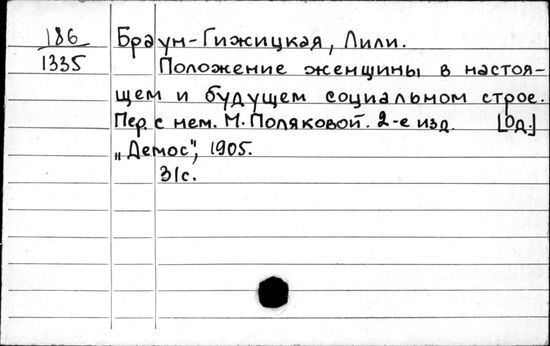 186
1335
Браун-Гижицкая, Лили.
Положение женщины в настоя-
щем и будущем социальном строе.
Пер. с нем. М. Поляковой. 2-е изд. [Од.]
„Демос", 1905.
31с.